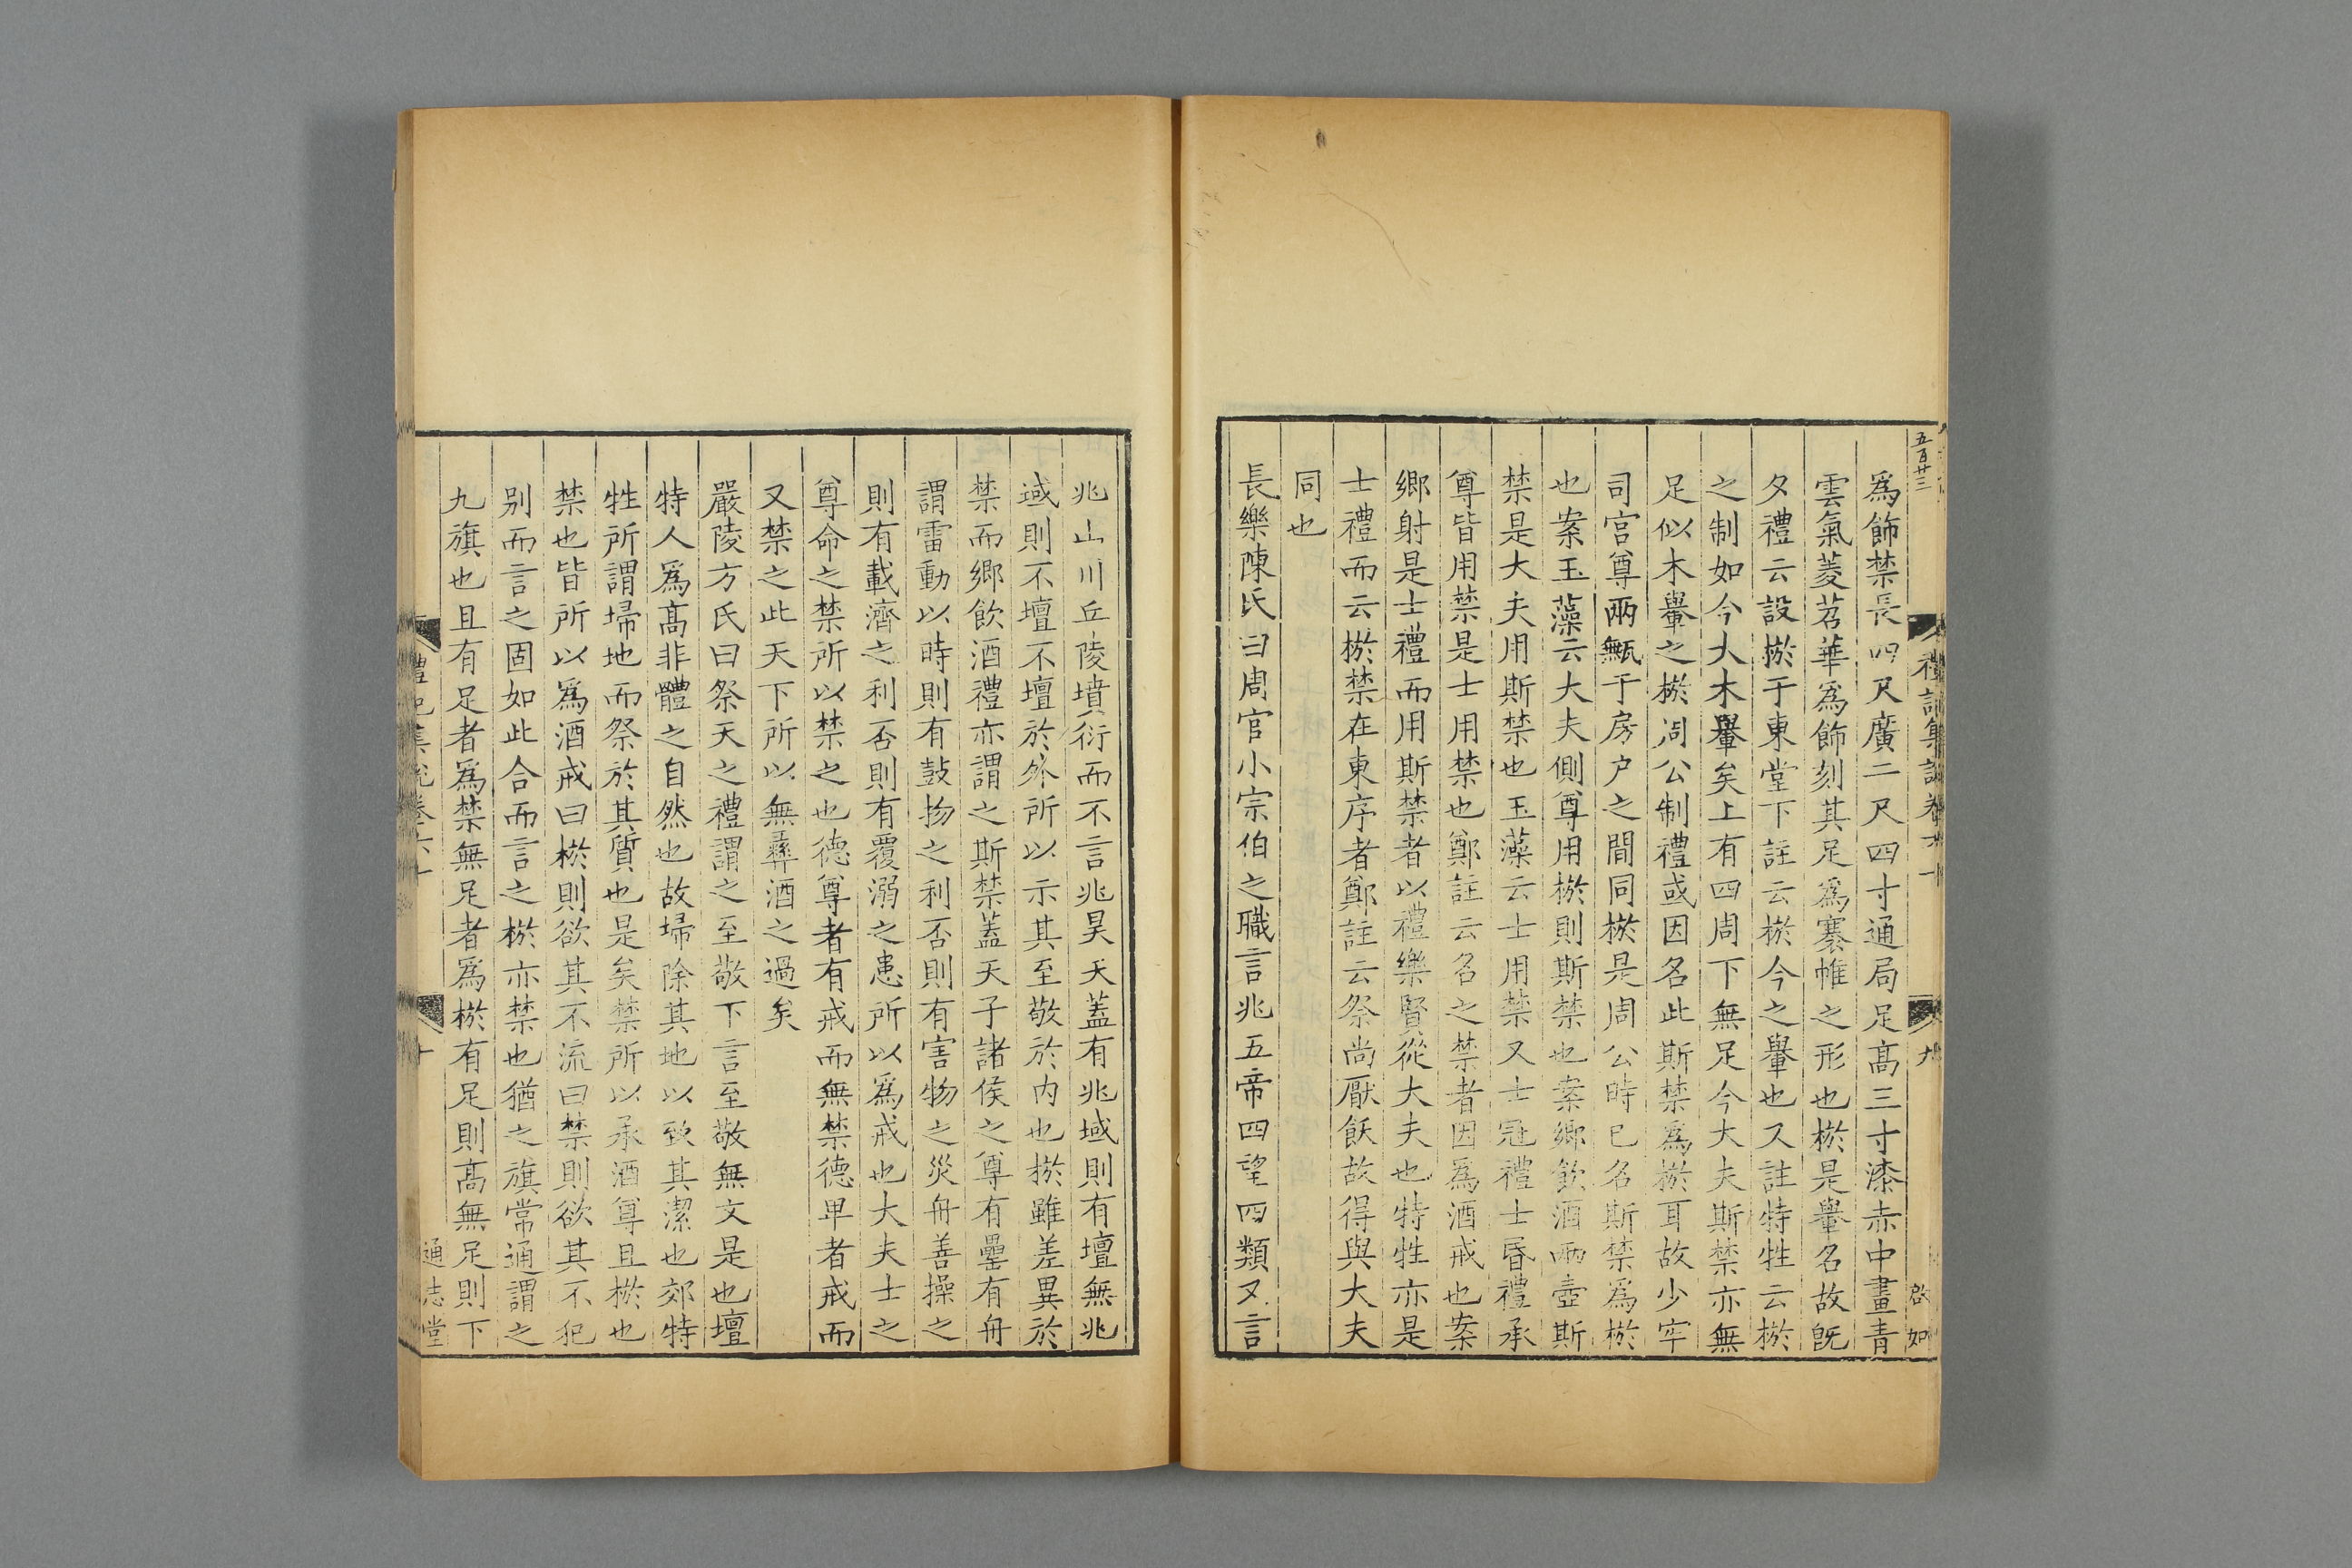 五百廿三
禮記集說卷六十一
九
啟如
為飾禁長四尺廣二尺四寸通局足髙三寸漆赤中畫青
雲氣菱苕華為飾刻其足為褰帷之形也棜是轝名故旣
夕禮云設棜于東堂下註云棜今之轝也又註特牲云棜
之制如今大木轝矣上有四周下無足今大夫斯禁亦無
足似木轝之棜周公制禮或因名此斯禁為棜耳故少牢
司宫尊兩甒于房户之間同棜是周公時已名斯禁為棜
也案玉藻云大夫側尊用棜則斯禁也案鄉飲酒兩壺斯
禁是大夫用斯禁也玉藻云士用禁又士冠禮士昏禮承
尊皆用禁是士用禁也鄭註云名之禁者因為酒戒也案
鄉射是士禮而用斯禁者以禮樂賢從大夫也特牲亦是
士禮而云棜禁在東序者鄭註云祭尚厭飫故得與大夫
同也
長樂陳氏曰周官小宗伯之職言兆五帝四望四類又言
兆山川丘陵墳衍而不言兆昊天蓋有兆域則有壇無兆
域則不壇不壇於外所以示其至敬於内也棜雖差異於
禁而鄉飲酒禮亦謂之斯禁蓋天子諸侯之尊有罍有舟
謂雷動以時則有鼓物之利否則有害物之災舟善操之
則有載濟之利否則有覆溺之患所以為戒也大夫士之
尊命之禁所以禁之也德尊者有戒而無禁德卑者戒而
又禁之此天下所以無彞酒之過矣
嚴陵方氏曰祭天之禮謂之至敬下言至敬無文是也壇
特人為髙非體之自然也故埽除其地以致其潔也郊特
牲所謂埽地而祭於其質也是矣禁所以承酒尊且棜也
禁也皆所以為酒戒曰棜則欲其不流曰禁則欲其不犯
别而言之固如此合而言之棜亦禁也猶之旗常通謂之
九旗也且有足者為禁無足者為棜有足則髙無足則下
禮記集說卷六十一
十
通志堂